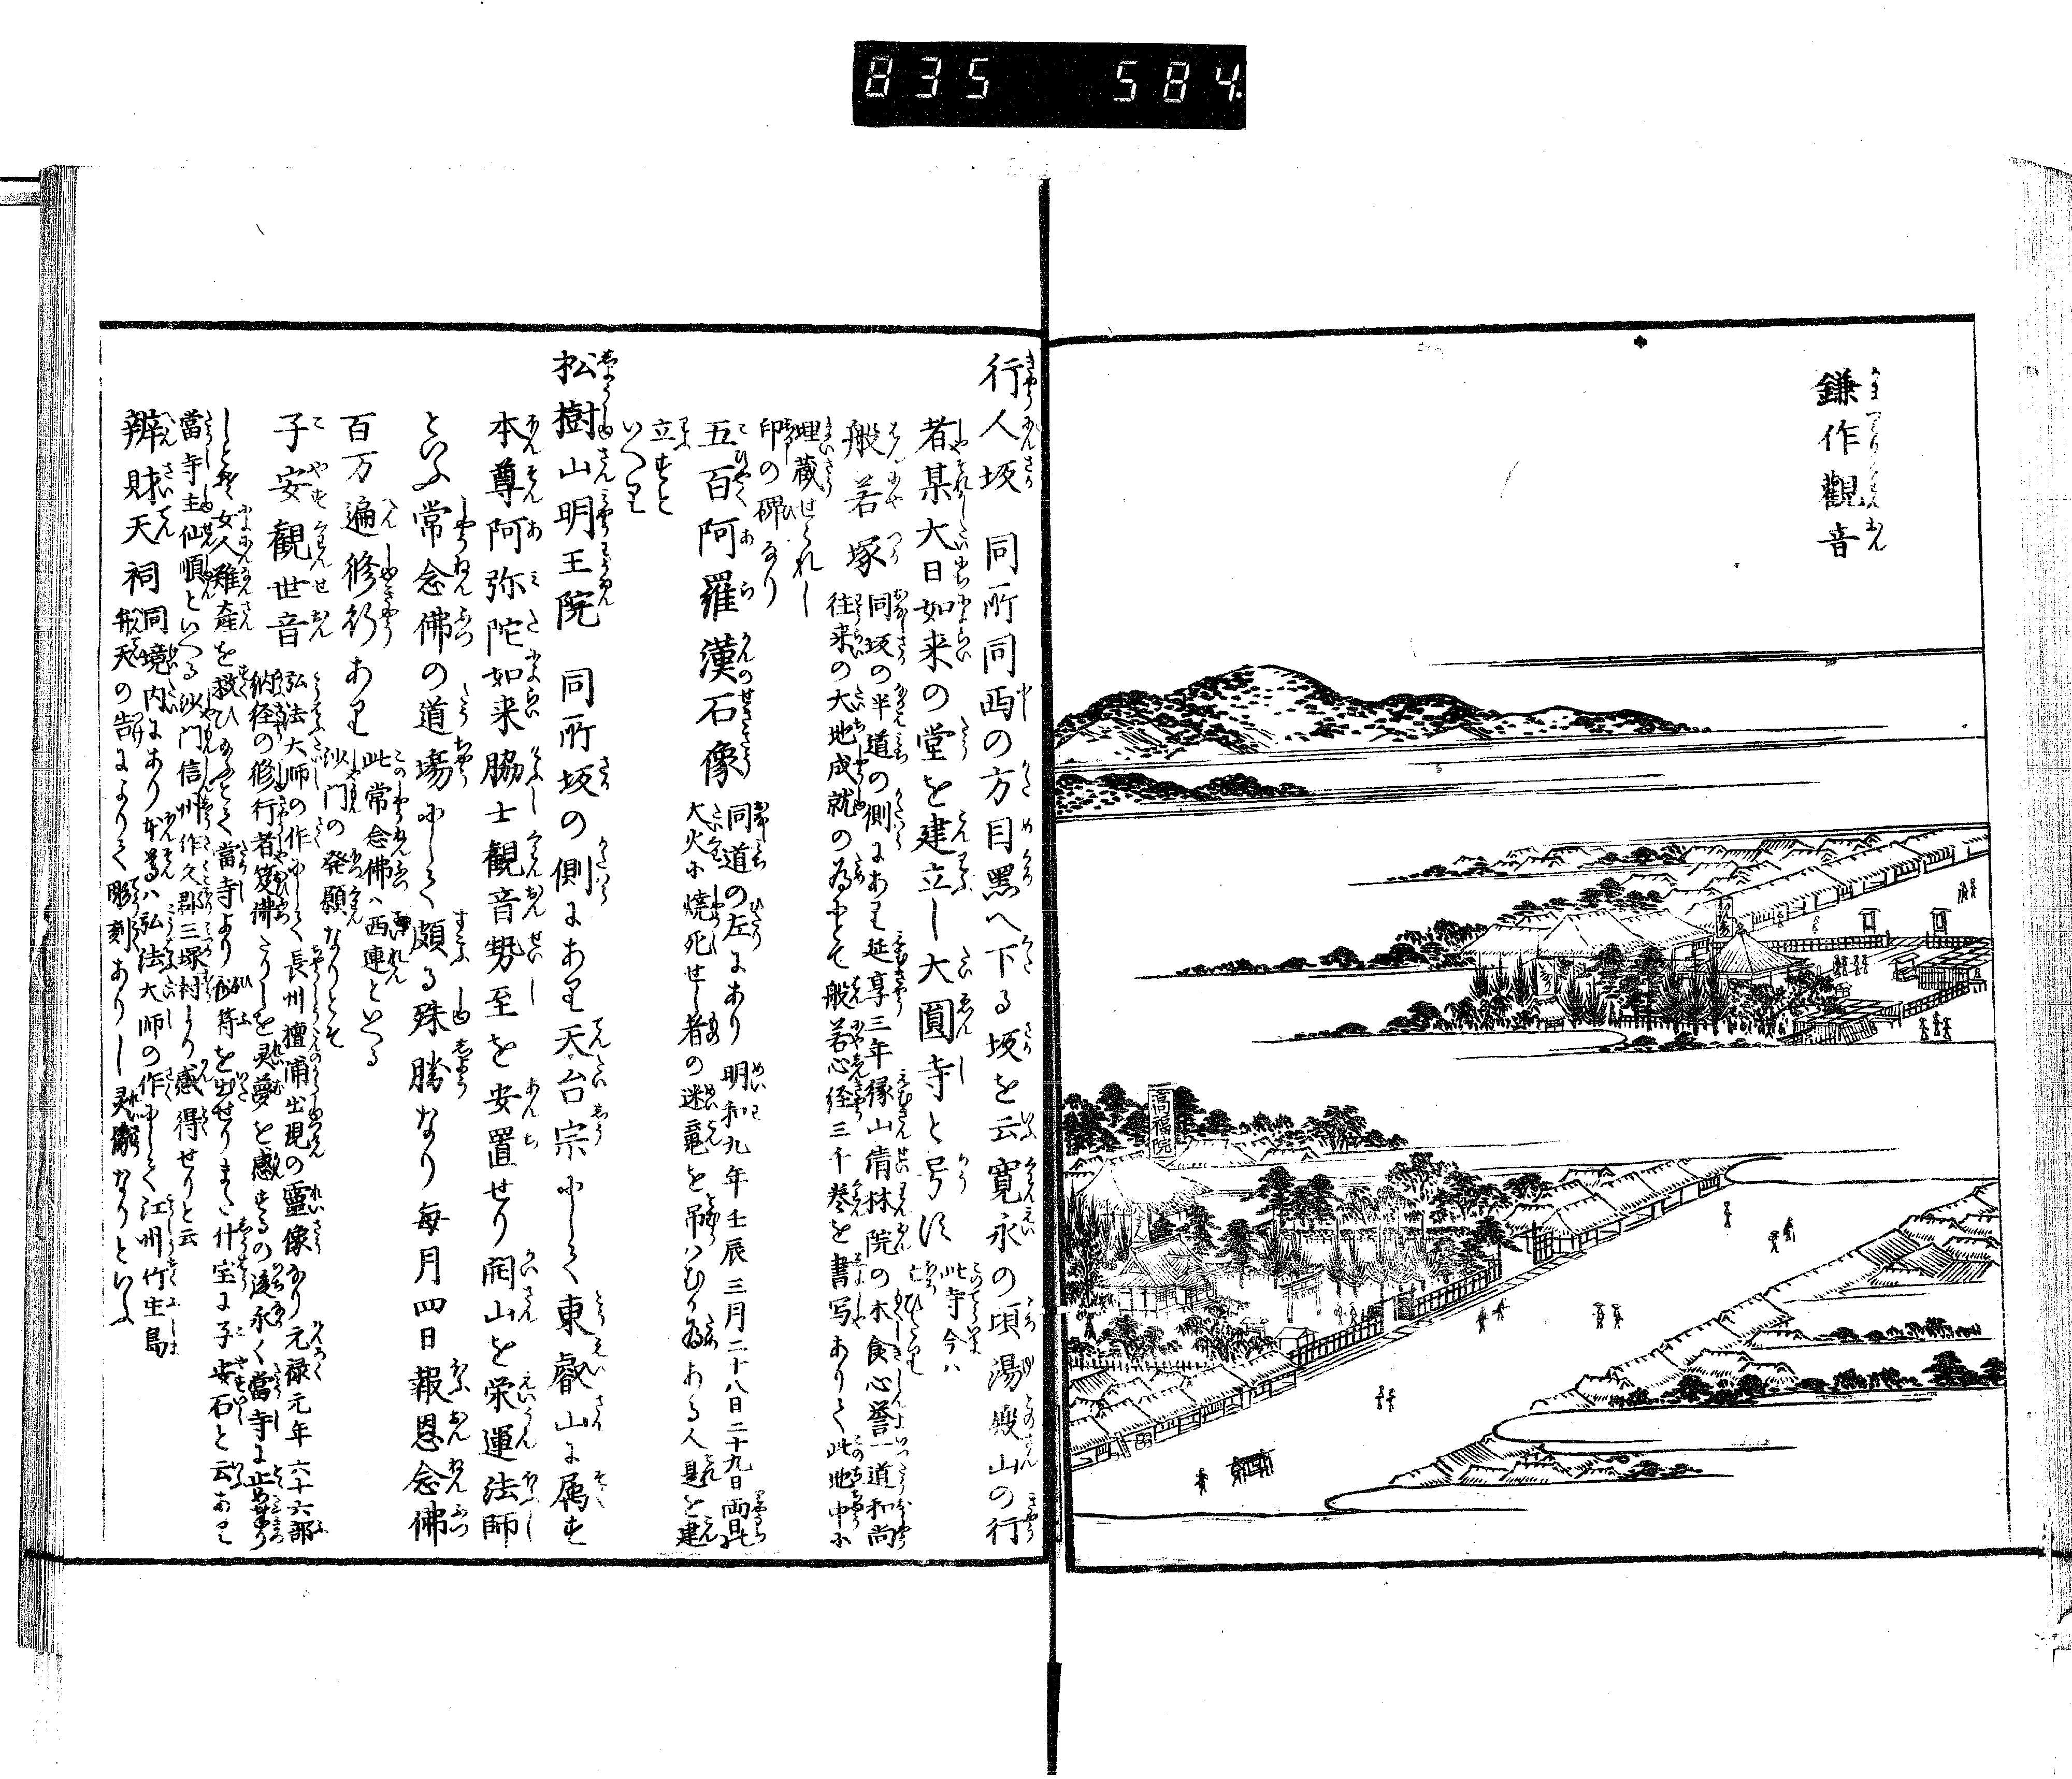 835 584
鎌作觀音
高福院
行人坂 同所同西の方目黒へ下る坂を云寛永の頃湯殿山の行
者某大日如来の堂を建立し大圓寺と号す此寺今ハ
亡ひたり
般若塚 同坂の半道の側にあり延享三年縁山清林院の木食心誉一道和尚
往来の大地成就の為にとて般若心経三千巻を書写ありて此地中に
埋蔵せられし
印の碑なり
五百阿羅漢石像 同道の左にあり明和九年壬辰三月二十八日二十九日両日
大火に焼死せし者の迷竜を吊はむ為ある人是を建
立すと
いへり
松樹山明王院 同所坂の側にあり天台宗にして東叡山に属す
本尊阿弥陀如来脇士観音勢至を安置せり開山を栄運法師
といふ常念佛の道場にして頗る殊勝なり毎月四日報恩念佛
百万遍修行あり 此常念佛ハ西蓮といへる
沙門の発願なりとそ
子安観世音 弘法大師の作にして長州檀浦出現の靈像なり元禄元年六十六部
納経の修行者笈佛たりしを灵夢を感するの後永く當寺に止めせり
しとそ女人難産を救ひ給ふとて當寺より符を出せりまた什宝に子安石と云あり
當寺主仙順といへる沙門信州作久郡三塚村より感得せりと云
辨財天祠 同境内にあり本尊ハ弘法大師の作にして江州竹生島
弁天の告によりて彫刻ありし灵像なりといふ